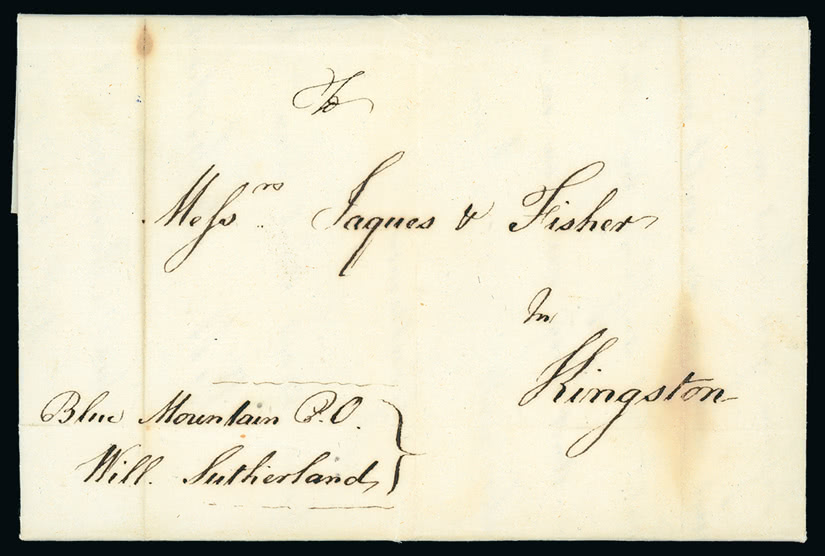 To
Messrs. Jaques & Fisher
In
Kingston
Blue Mountain P.O.
Will. Sutherland